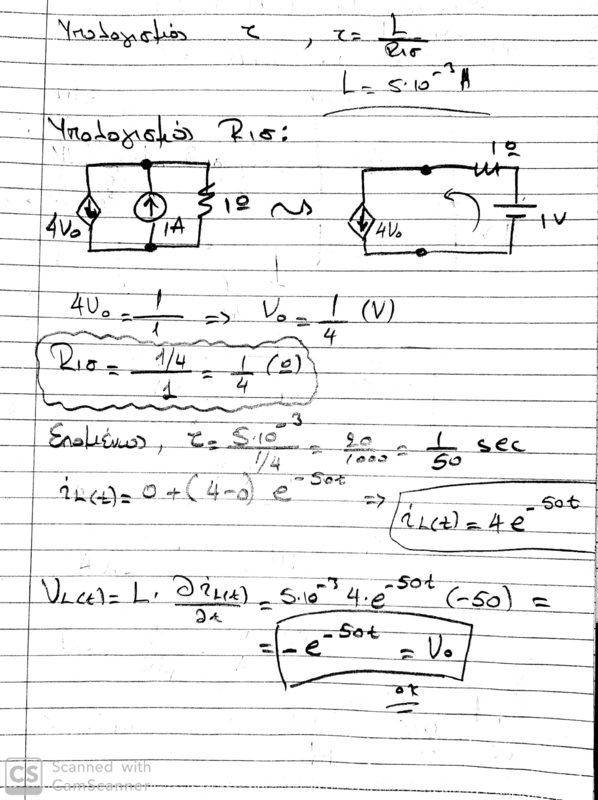 Υπολογισμός τ , τ = L/Rισ
L = 5·10^-3 H
Υπολογισμός Rισ:
1Ω
4V₀ 1A 1Ω 4V₀ 1V
4V₀ = 1/1 => V₀ = 1/4 (V)
Rισ = 1/4/1 = 1/4 (Ω)
Επομένως, τ = 5·10^-3/1/4 = 20/1000 = 1/50 sec
i_L(t) = 0 + (4-0) e^-50t => i_L(t) = 4 e^-50t
V_L(t) = L · ∂i_L(t)/∂t = 5·10^-3 4·e^-50t (-50) =
= -e^-50t = V₀
οκ
CS Scanned with
CamScanner